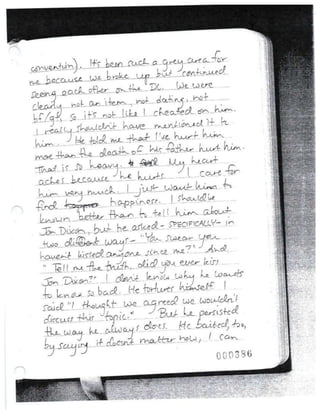 convention). It's been such a grey area for
me because we broke up but continued
seeing each other on the DL. We were
clearly not an item, not dating, not
bf/gf, so it's not like I cheated on him.
I really shouldn't have mentioned it to
him. He told me that I've hurt him
more than the death of his father hurt him.
That is so heavy. My heart
aches because he hurts. I care for
him very much. I just want him to
find happiness. I should've
known better than to tell him about
Jon Dixon, but he asked - SPECIFICALLY - in
two different ways - "You swear you
haven't kissed anyone since me?" And,
"Tell me the truth, did you ever kiss
Jon Dixon?" I don't know why he wants
to know so bad. He tortures himself. I
said "I thought we agreed we wouldn't
discuss this topic." But he persisted
the way he always does. He baited, too,
by saying it doesn't matter now, I can
000386